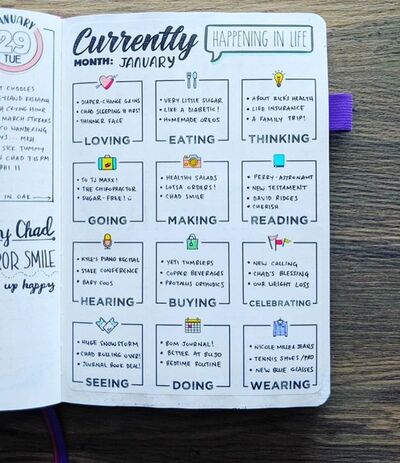 JANUARY
29
TUE
IN OAK
Chad
OR SMILE
up happy
Currently
HAPPENING IN LIFE
MONTH: JANUARY
• DIAPER-CHANGE GRINS
• CHAD SLEEPING 11 HRS!
• THINNER FACE
LOVING
• VERY LITTLE SUGAR
• LIKE A DIABETIC!
• HOMEMADE OREOS
EATING
• ABOUT RICK'S HEALTH
• LIFE INSURANCE
• A FAMILY TRIP!
THINKING
• TO TJ MAXX!
• THE CHIROPRACTOR
• SUGAR-FREE!
GOING
• HEALTHY SALADS
• LOTSA ORDERS!
• CHAD SMILE
MAKING
• PERRY-ASTRONAUT
• NEW TESTAMENT
• DAVID RIDGES
• CHERISH
READING
• KYLE'S PIANO RECITAL
• STAKE CONFERENCE
• BABY COOS
HEARING
• YETI TUMBLERS
• COPPER BEVERAGES
• PROTALUS ORTHOTICS
BUYING
• NEW CALLING
• CHAD'S BLESSING
• OUR WEIGHT LOSS
CELEBRATING
• HUGE SNOWSTORM
• CHAD ROLLING OVER!
• JOURNAL BOOK DEAL!
SEEING
• BOM JOURNAL!
• BETTER AT BUJO
• BEDTIME ROUTINE
DOING
• NICOLE MILLER JEANS
• TENNIS SHOES/PRO
• NEW BLUE GLASSES
WEARING